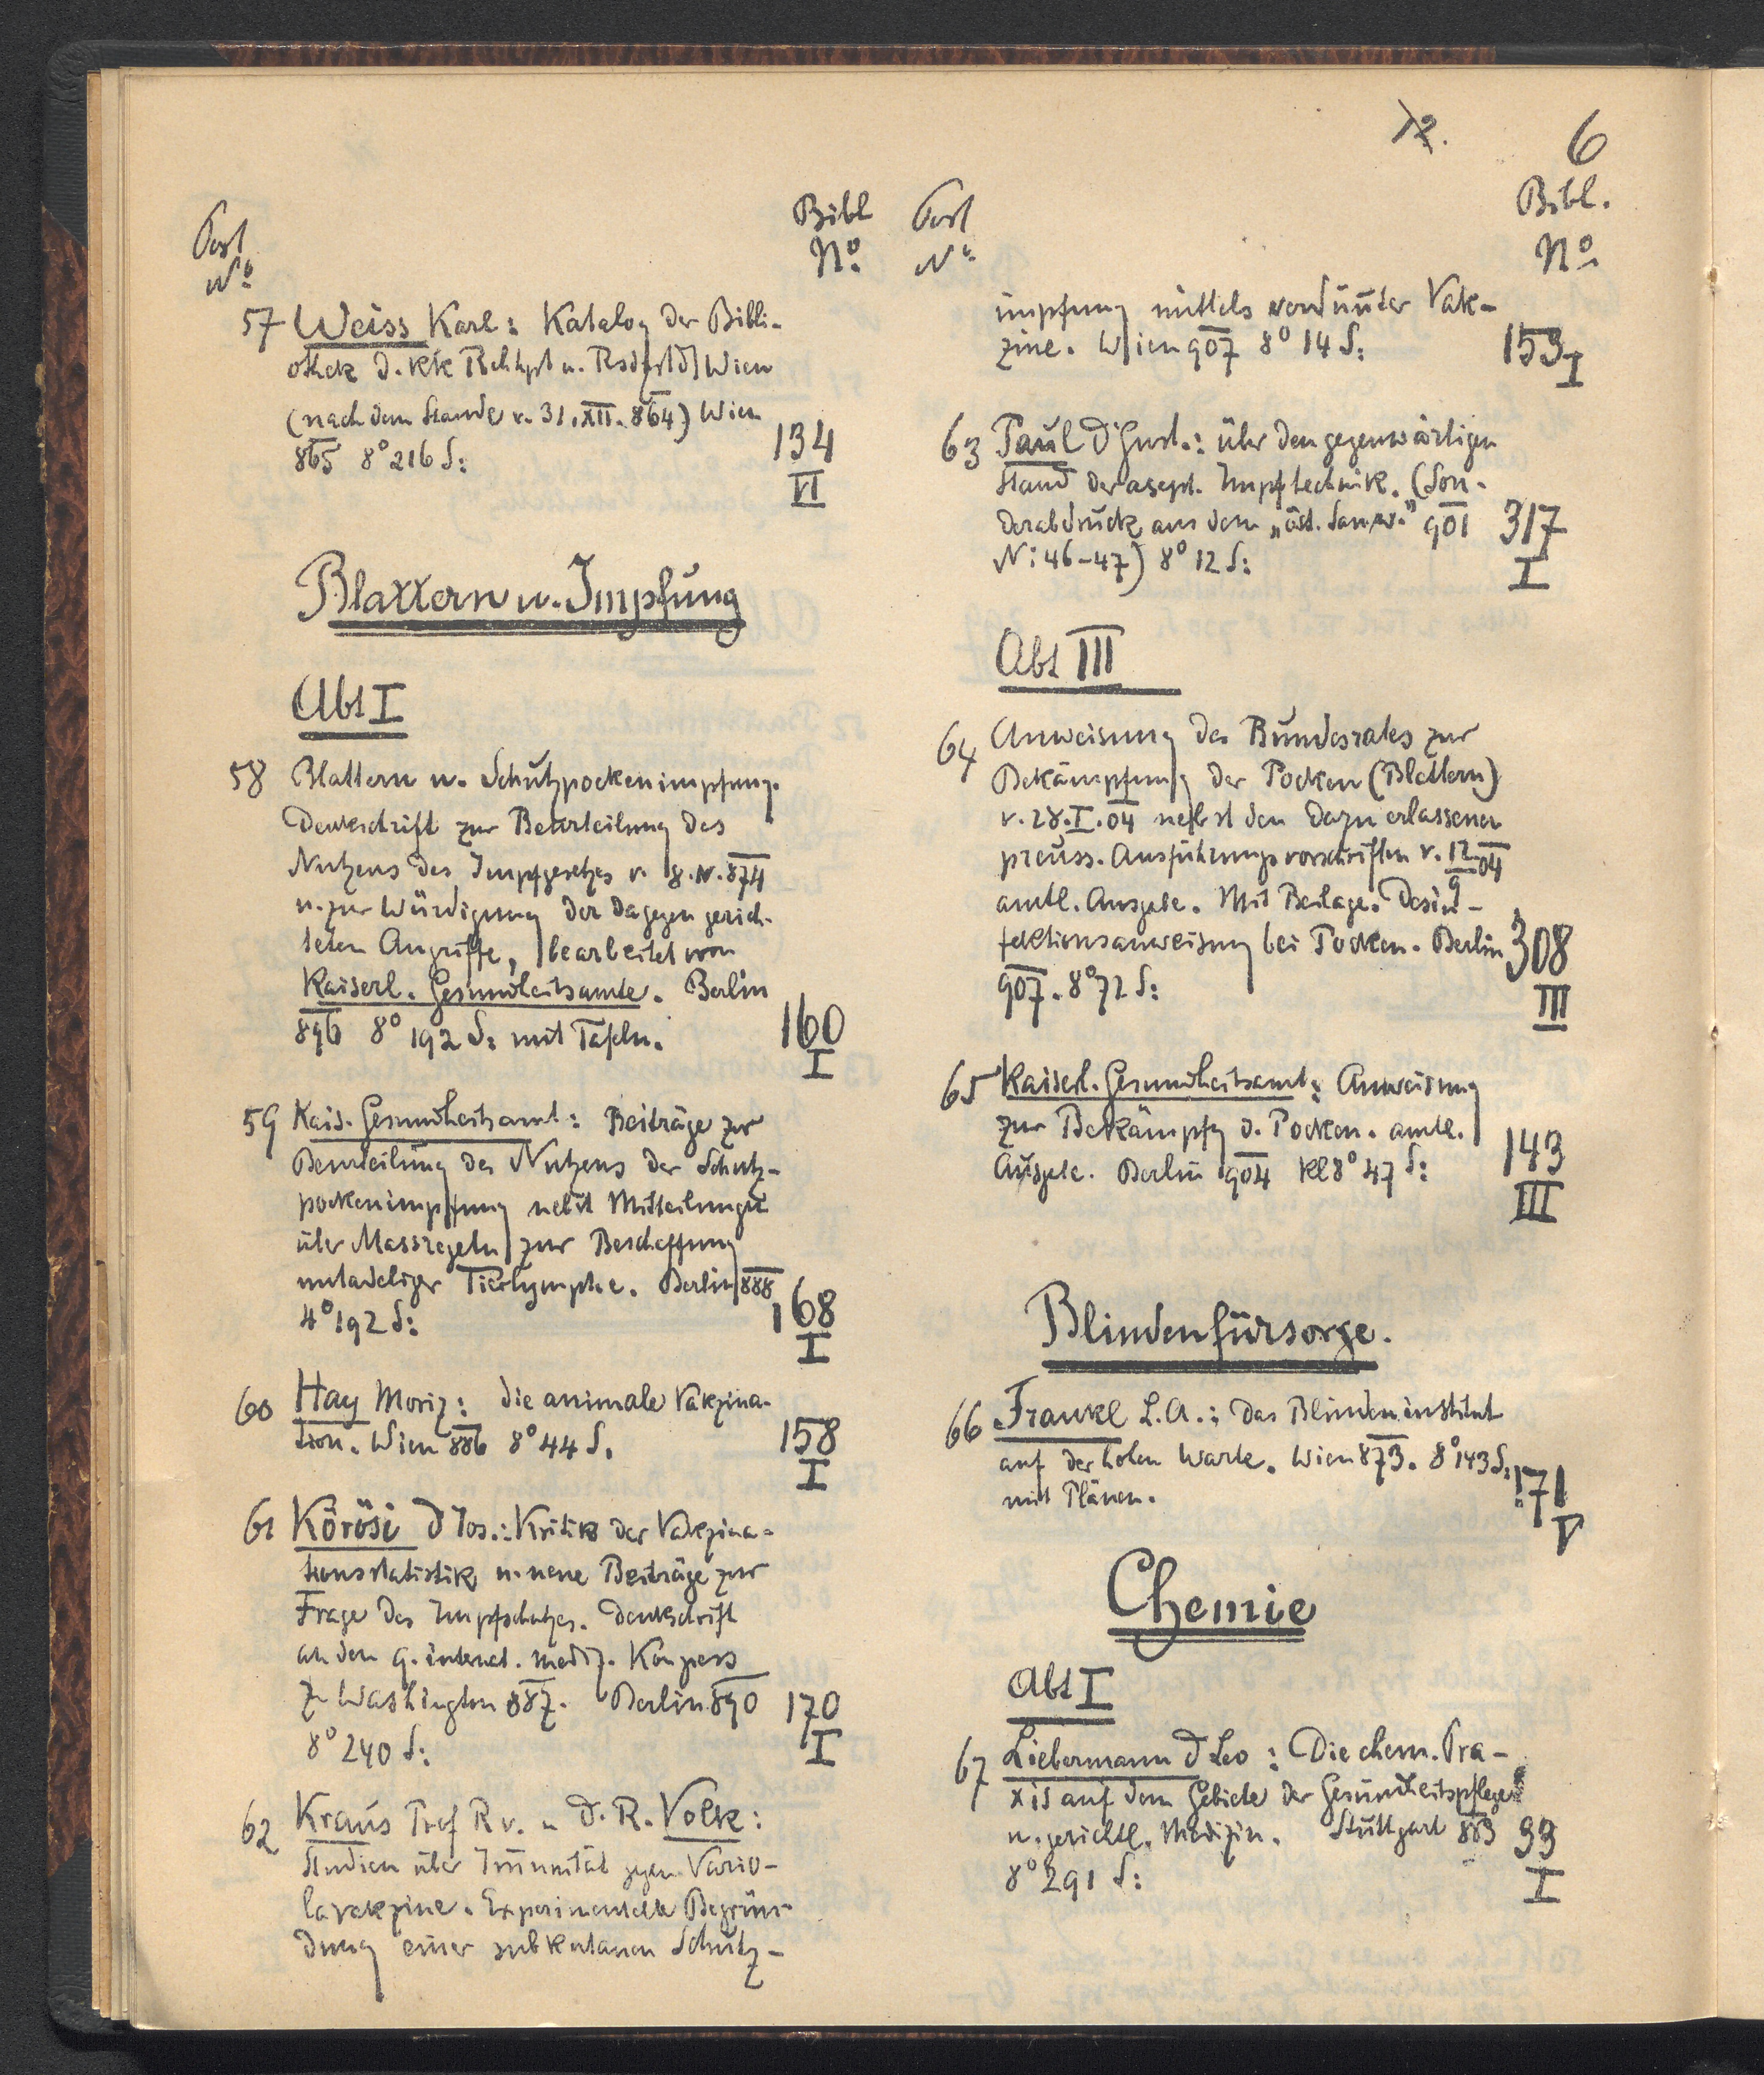 12. 6
Post
No
Bibl
No.
57 Weiss Karl: Katalog der Bibli-
othek d. kk Rchhpt u. Rsdzstdt Wien
(nach dem Stande v. 31.XII.864) Wien
865 8° 216 S:
134
VI
Blattern u. Impfung
Abt I
58 Blattern u. Schutzpockenimpfung.
Denkschrift zur Beurteilung des
Nutzens des Impfgesetzes v. 8.IV.874
u. zur Würdigung der dagegen gerich-
teten Angriffe, bearbeitet vom
Kaiserl. Gesundheitsamte. Berlin
896 8° 192 S: mit Tafeln.
160
I
59 Kais. Gesundheitsamt: Beiträge zur
Beurteilung des Nutzens der Schutz-
pockenimpfung nebst Mitteilungen
über Massregeln zur Beschaffung
untadeliger Tierlymphe. Berlin 888
4° 192 S:
168
I
60 Hay Moriz: die animale Vakzina-
tion. Wien 886 8° 44 S.
158
I
61 Körösi D Jos.: Kritik der Vakzina-
tionsstatistik u. neue Beiträge zur
Frage des Impfschutzes. Denkschrift
an den 9. internat. mediz. Kongress
zu Washington 887. Berlin 890
8° 240 S:
170
I
62 Kraus Prof R v. u D. R. Volk:
Studien über Immunität gegen Vario-
lavakzine. Experimentelle Begrün-
dung einer subkutanen Schutz-
Post
No
Bibl.
No
impfung mittels verdünnter Vak-
zine. Wien 907 8° 14 S:
153
I
63 Paul D Gust.: über den gegenwärtigen
Stand der asept. Impftechnik. (Son-
derabdruck aus dem „öst. San.w." 901
N: 46-47) 8° 12 S:
317
I
Abt III
64 Anweisung des Bundesrates zur
Bekämpfung der Pocken (Blattern)
v. 28.I.04 nebst den dazu erlassenen
preuss. Ausführungsvorschriften v. 12/9 04
amtl. Ausgabe. Mit Beilage. Desin-
fektionsanweisung bei Pocken. Berlin
907. 8° 72 S:
308
III
65 Kaiserl. Gesundheitsamt: Anweisung
zur Bekämpfg d. Pocken. amtl.
Ausgabe. Berlin 904 Kl 8° 47 S:
143
III
Blindenfürsorge.
66 Frankl L.A.: Das Blindeninstitut
auf der hohen Warte. Wien 873. 8° 143 S:
mit Plänen.
171
V
Chemie
Abt I
67 Liebermann D Leo: Die chem. Pra-
xis auf dem Gebiete der Gesundheitspflege
u. gerichtl. Medizin. Stuttgart 883
8° 291 S:
99
I